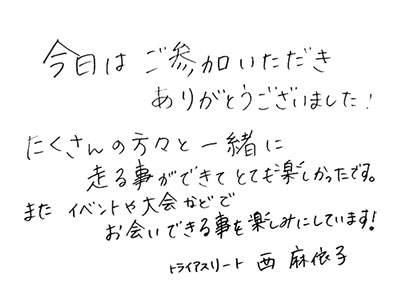 今日は ご参加いただき
ありがとうございました!
たくさんの方々と一緒に
走る事ができて とても楽しかったです。
また イベントや大会などで
お会いできる事を楽しみにしています!
トライアスリート 西 麻依子